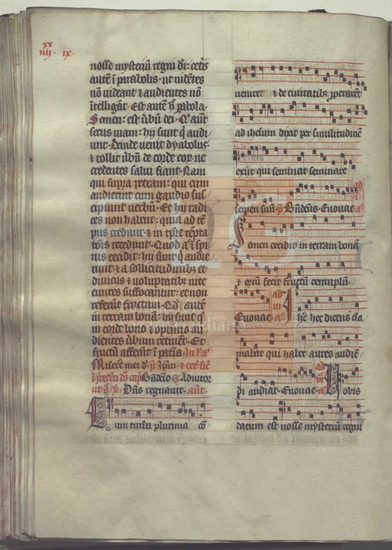 xx
iiij · ix ·
nosse mysteriū regni dī · cetis
autē ī parabolis · ut uidētes
nō uideāt ⁊ audientes nō
ītelligāt · Est autē hec pabola ·
Semen · est ūbū dei · Q aūt
secus uiam · hij sunt q̇ audi
unt · Deinde uenit dyabolus ·
⁊ tollit ūbū de corde eor ne
credentes salui fiant · Nam
qui supra petram · qui cum
audierint cum gaudio sus
cipiunt uerbū · Et hij radi
ces non habent · quia ad tē
pus credunt · ⁊ in tp̄e tēpta
tōis recedunt · Quod aūt ī spi
nis cecidit · hij sunt q̇ audie
runt · ⁊ a sollicitudinibz ⁊
diuiciis ⁊ uoluptatibz uite
euntes suffocantur · ⁊ non
referūt fructum · Qd autē
in terram bonā · hij sunt qui
in corde bono ⁊ optimo au
dientes ūbum retinēt · Et
fructū afferūt ī paciā ·
Misere mei d
Dn̄s regnauit · ant
Cum turba plurima cō
ueniret ⁊ de ciuitatibz properarēt
ad ihesum dixit per similitudinē
exijt qui seminat seminare
semen suū · Euouae ·
Semen cecidit in terram bonā
⁊ Euouae · Ihc hec dicens cla
mabat qui habet aures audiē
di audiat Euouae · Uobis
datum est nosse mysteriū regni